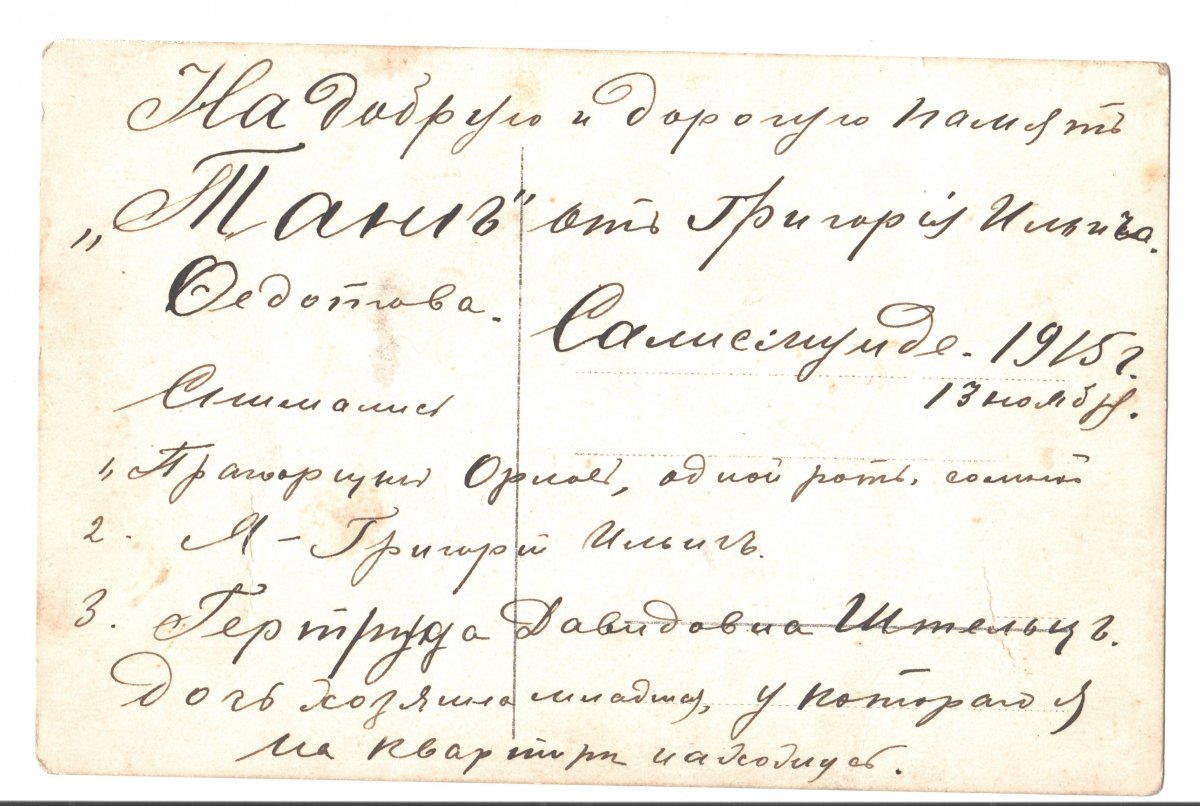 На добрую и дорогую память
„Танѣ" отъ Григорія Ильича.
Федотова.
Салисмунде. 1915 г.
13 ноября.
Снимались
1, Прапорщикъ Орловъ, одной роты. со мной
2. Я - Григорій Ильичъ.
3. Гертруда Давидовна Штельцъ.
дочь хозяина младшая, у котораго я
на квартирѣ нахожусь.